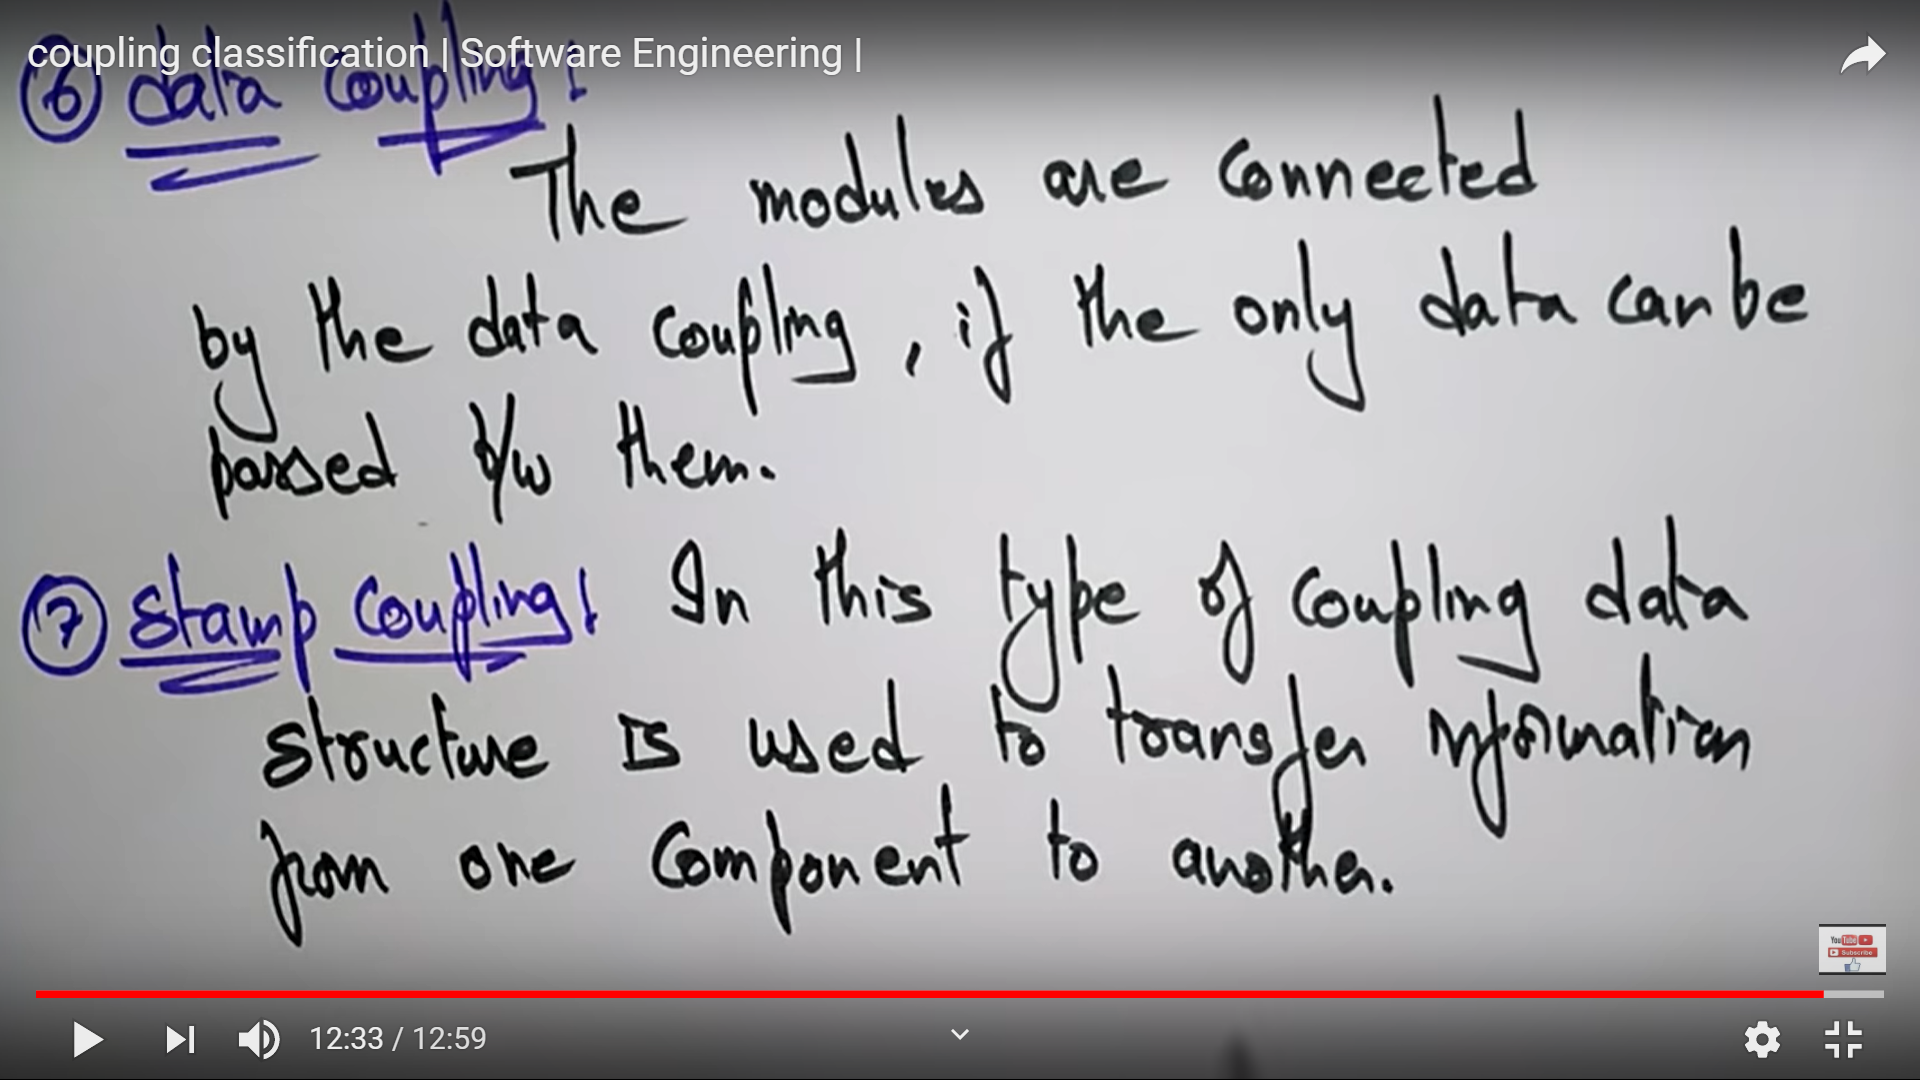 coupling classification | Software Engineering |
⑥ data coupling:
The modules are connected
by the data coupling, if the only data can be
passed b/w them.
⑦ Stamp Coupling: In this type of coupling data
structure is used to transfer information
from one component to another.
YouTube
Subscribe
12:33 / 12:59